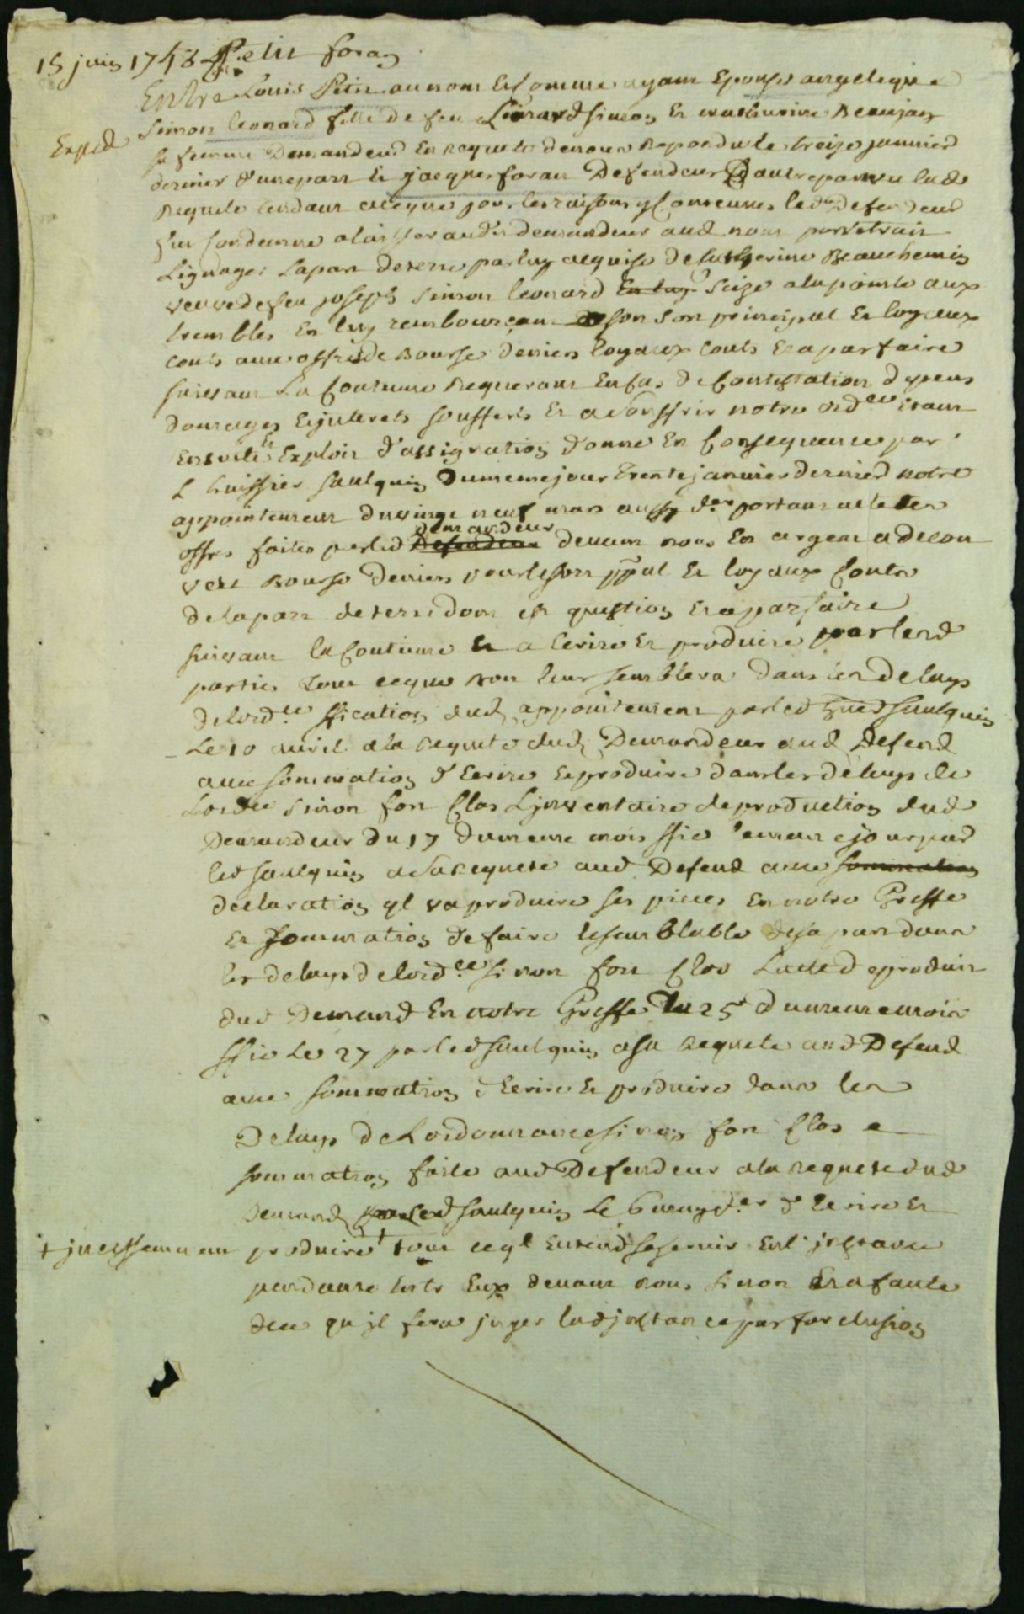 15 juin 1748 Petit foran
Entre Louis Petit au nom Et Comme ayant Epousé angelique
Simon leonard fille de feu Leonard Simon Et Beaujan
Exped
sa femme Demandeur En Requete de nous Repondu le treize janvier
dernier d'une part Et jacques foran Defendeur d'autre part vu lad
Requete tendant aceque pour les raisons y Contenues led. Defendeur
soit Condamné a laisser aud. demandeur aud nom par retrait
Lignager Lapart de terre par luy acquise de Catherine Beauchemin
veuve de feu joseph Simon leonard Size a la pointe aux
trembles En luy remboursant son Sort principal Et loyaux
couts aux offres de Bourse deniers loyaux Couts Et aparfaire
suivant La Coutume Requerant En Cas de Contestation depens
domages Ejnterets soufferts Et a Souffrir notre ord.ce Etant
Ensuite Exploit d'assignation donné En Consequence par
L huissier Saulquin du meme jour trente janvier dernier notre
appointement du vingt neuf mars aussy d.er portant acte des
offres faites par led Defendeur demandeur devant nous En argent a decou
vert Bourse deniers pour le sort ppal Et loyaux Couts
de la part de terre dont est question Et aparfaire
suivant la Coutume Et a Ecrire Et produire par lesd
parties tout ceque bon leur semblera dans les delays
de lord.ce sfication dud. appointement par led Saulquin
Le 10 avril a la Requete dud. Demandeur aud Defend
avec sommation d'Ecrire Eproduire dans les delays de
Lord.ce sinon forclos Ljnventaire de production dud
Demandeur du 17 du meme mois sfié le meme jour par
led Saulquin a sa Requete aud. Defend avec sommation
declaration ql va produire ses pieces En notre Greffe
Et sommation de faire lesemblable desa part dans
les delays de lord.ce sinon forclos Lacte de produit
dud Demand En notre Greffe du 25 du meme mois
sfié Le 27 par led Saulquin a sa Requete aud Defend
avec sommation d'Ecrire Et produire dans les
Delays de Lordonnance sinon forclos
sommation faite aud Defendeur a la Requete dud
demand par led Saulquin Le 6 may d.er d'Ecrire Et
+ jncessamment
produire + tout ceql Entend se servir En l'jnstance
pendante Entre Eux devant nous sinon Et afaute
dece qu jl fera juger lad jnstance par forclusion